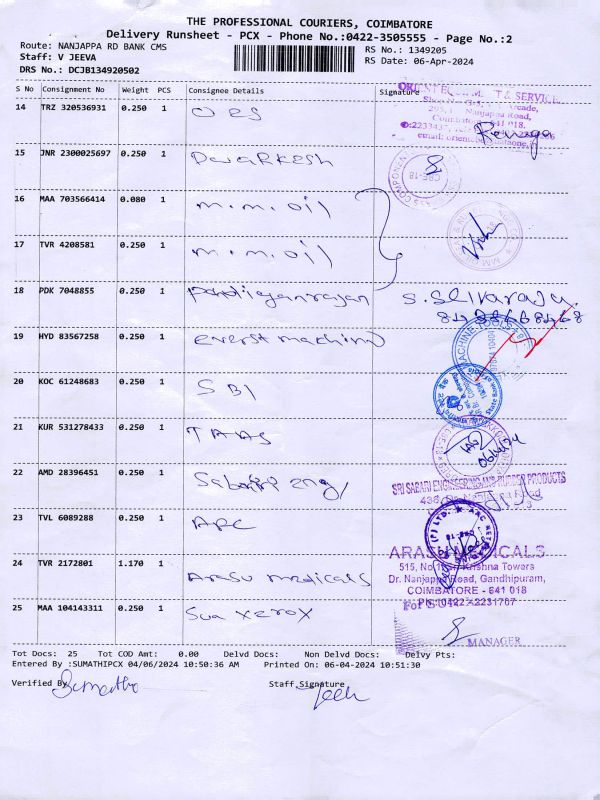 THE PROFESSIONAL COURIERS, COIMBATORE
Delivery Runsheet - PCX - Phone No.:0422-3505555 - Page No.:2
Route: NANJAPPA RD BANK CMS
RS No.: 1349205
Staff: V JEEVA
RS Date: 06-Apr-2024
DRS No.: DCJB134920502
S No Consignment No Weight PCS Consignee Details Signature
14 TRZ 320536931 0.250 1 OES
Nanjappa Road,
Renuga
15 JNR 2300025697 0.250 1 Dwarkesh
CBE-18
16 MAA 703566414 0.080 1 m.m.oil
17 TVR 4208581 0.250 1 m.m.oil
18 PDK 7048855 0.250 1 S.Slivaraju.
19 HYD 83567258 0.250 1 everest machine
MACHINE TOOLS
20 KOC 61248683 0.250 1 SBI
21 KUR 531278433 0.250 1 TAAS
22 AMD 28396451 0.250 1
SRI SABARI ENGINEERING AND RUBBER PRODUCTS
23 TVL 6089288 0.250 1 ARC
24 TVR 2172801 1.170 1 Arasu medicals
ARASU MEDICALS
515, Krishna Towers
Dr. Nanjappa Road, Gandhipuram,
COIMBATORE - 641 018
PH: 0422 - 2231767
25 MAA 104143311 0.250 1 Sua xerox
MANAGER
Tot Docs: 25 Tot COD Amt: 0.00 Delvd Docs: Non Delvd Docs: Delvy Pts:
Entered By :SUMATHIPCX 04/06/2024 10:50:36 AM Printed On: 06-04-2024 10:51:30
Verified By
Staff Signature